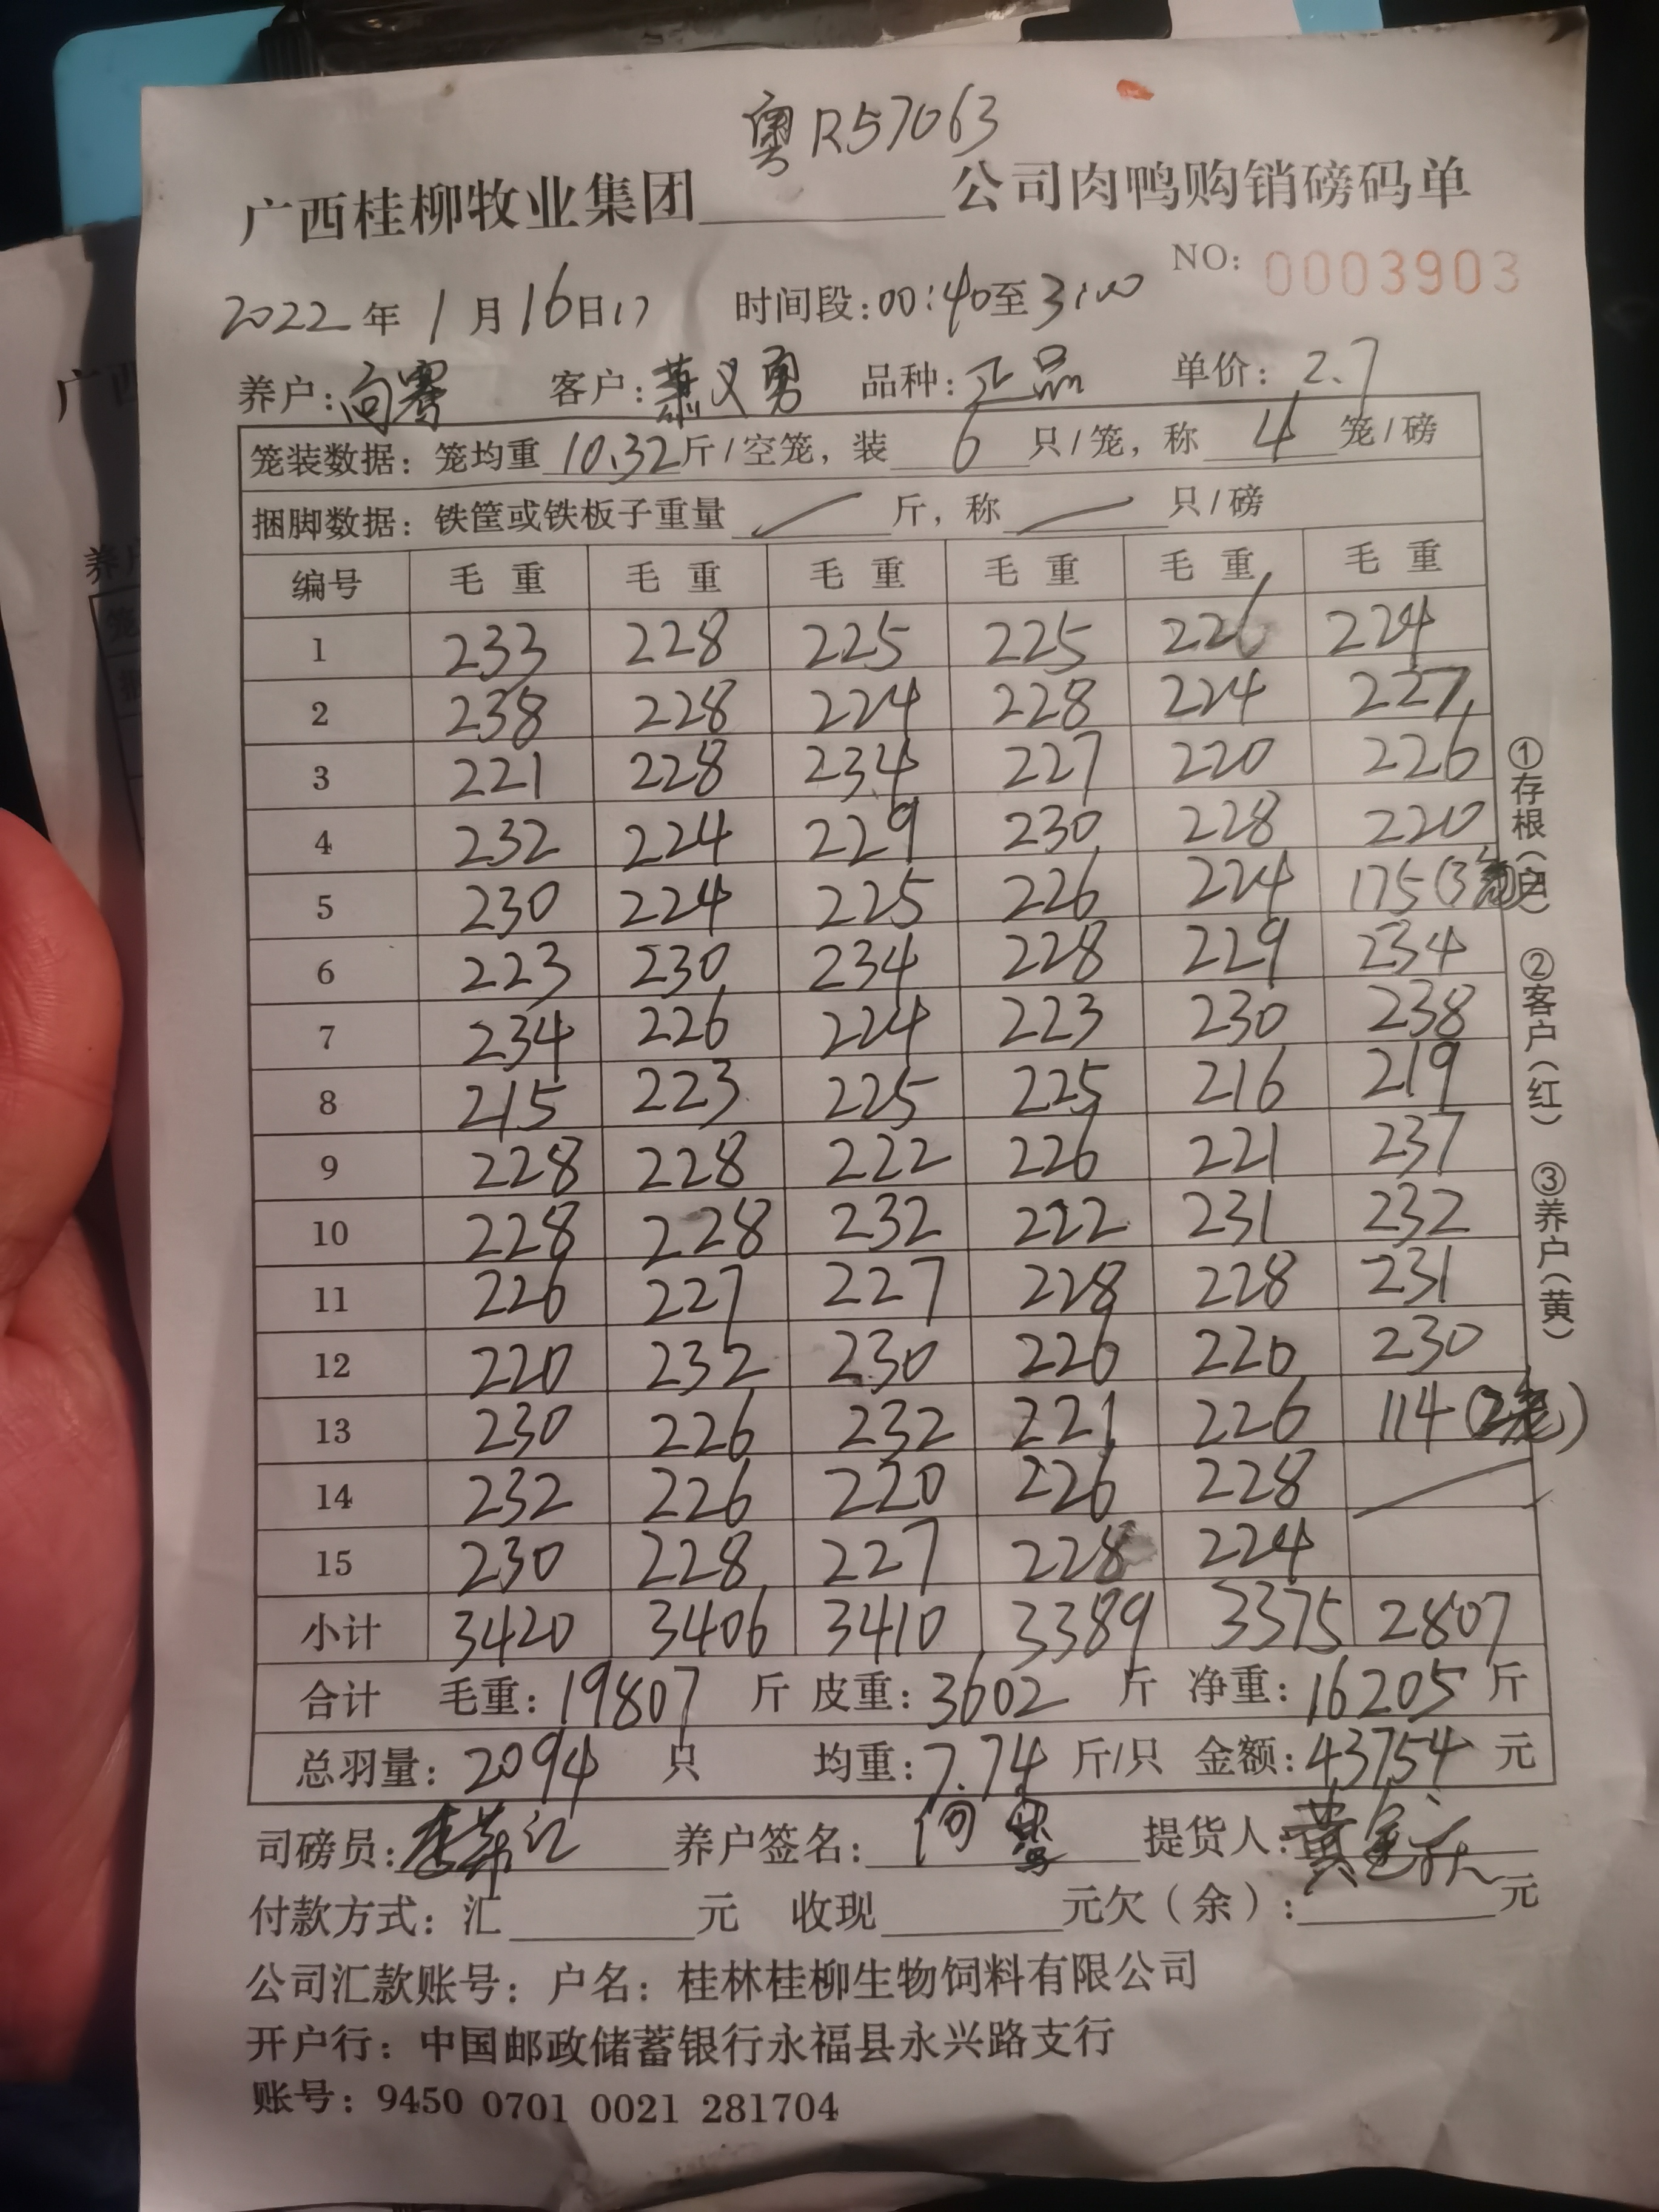 粤R57063
广西桂柳牧业集团________公司肉鸭购销磅码单
NO: 0003903
2022年1月16日17 时间段:00:40至3:00
养户:向骞 客户:萧义勇 品种:正品 单价:2.7
笼装数据:笼均重10.32斤/空笼,装6只/笼,称4笼/磅
捆脚数据:铁筐或铁板子重量 / 斤,称 / 只/磅
编号 毛重 毛重 毛重 毛重 毛重 毛重
1 233 228 225 225 226 224
2 238 228 224 228 224 227
3 221 228 234 227 220 226
4 232 224 229 230 228 220
5 230 224 225 226 224 175(3笼)
6 223 230 234 228 229 234
7 234 226 224 223 230 238
8 215 223 225 225 216 219
9 228 228 222 226 221 237
10 228 228 232 222 231 232
11 226 227 227 228 228 231
12 220 232 230 226 220 230
13 230 226 232 221 226 114(2笼)
14 232 226 220 226 228
15 230 228 227 228 224
小计 3420 3406 3410 3389 3375 2807
合计 毛重:19807斤 皮重:3602斤 净重:16205斤
总羽量:2094只 均重:7.74斤/只 金额:43754元
司磅员: 养户签名:向骞 提货人:黄
付款方式:汇______元 收现______元欠(余):______元
公司汇款账号:户名:桂林桂柳生物饲料有限公司
开户行:中国邮政储蓄银行永福县永兴路支行
账号:9450 0701 0021 281704
①存根(白) ②客户(红) ③养户(黄)